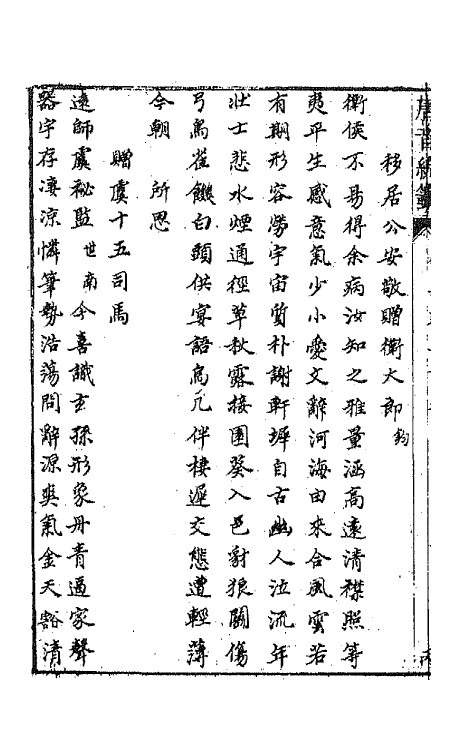 唐音統籤
移居公安敬贈衛大郎 鈞
衛侯不易得余病汝知之雅量涵高遠清襟照等
夷平生感意氣少小愛文辭河海由來合風雲若
有期形容勞宇宙質朴謝軒墀自古幽人泣流年
壯士悲水煙通徑草秋露接園葵入邑豺狼鬬傷
弓鳥雀饑白頭供宴語烏几伴棲遲交態遭輕薄
今朝 所思
贈虞十五司馬
遠師虞秘監世南今喜識玄孫形象丹青逼家聲
器宇存淒涼憐筆勢浩蕩問辭源爽氣金天豁清